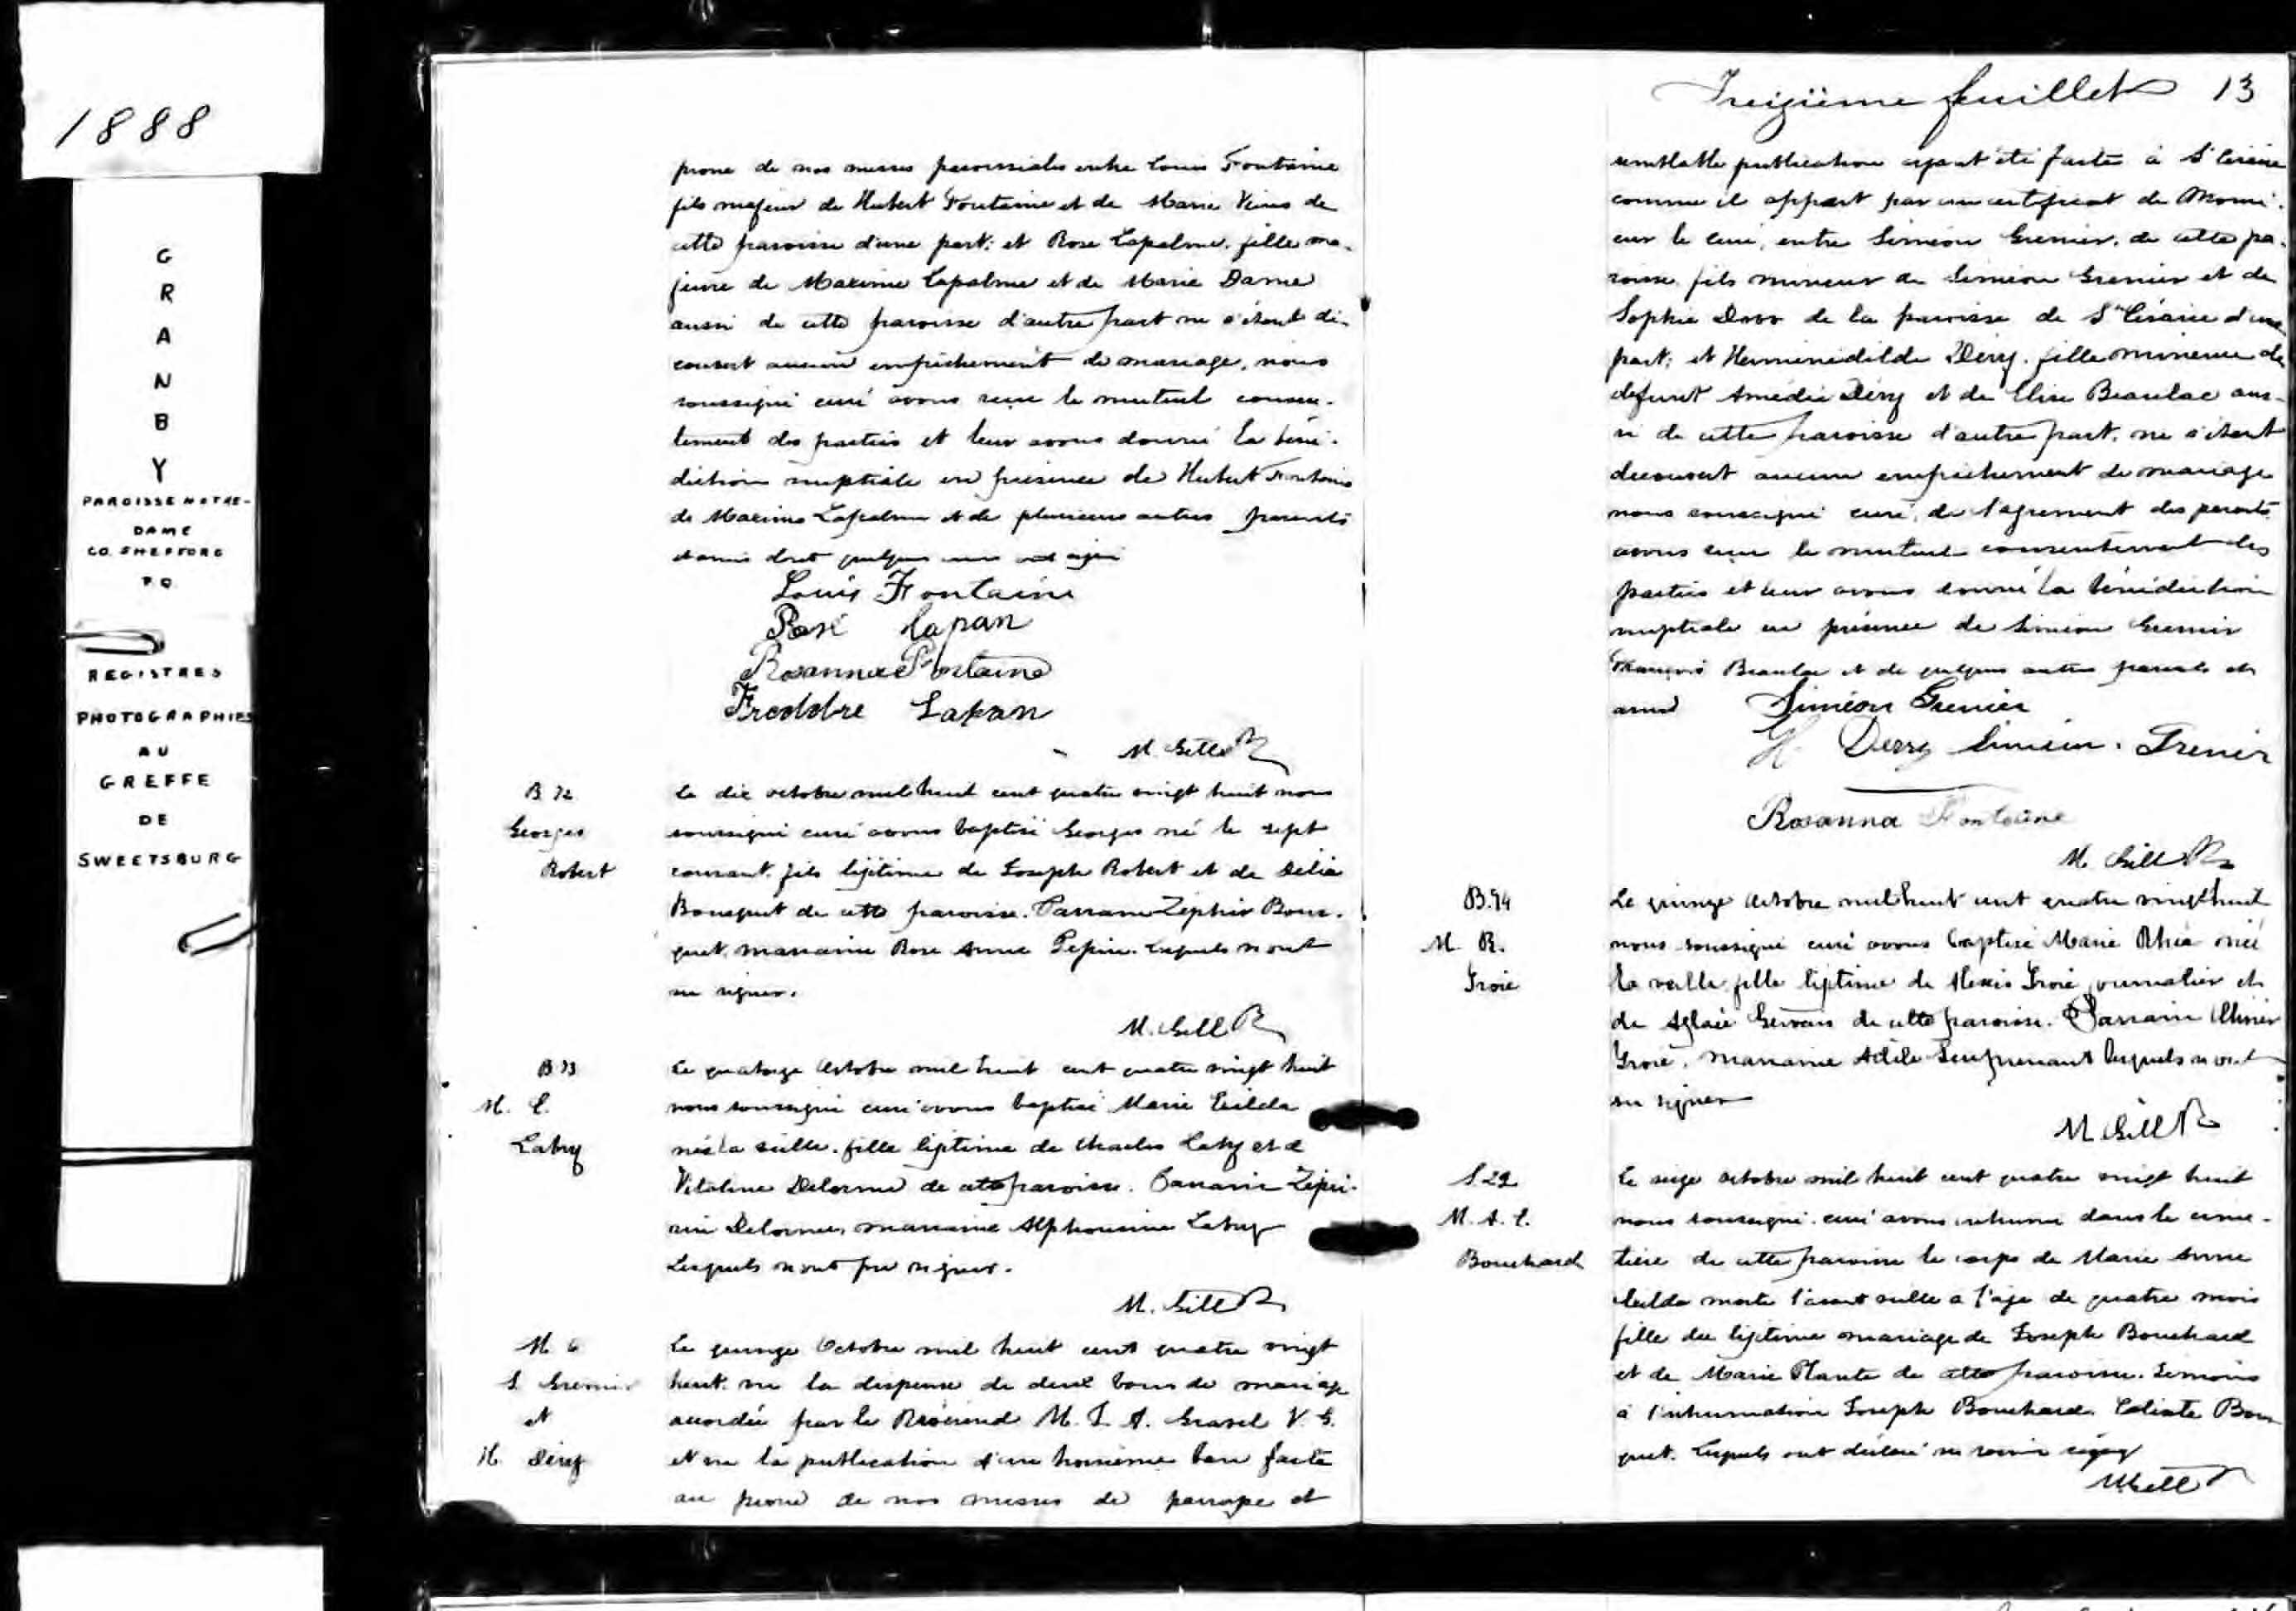 1888
G
R
A
N
B
Y
PAROISSE NOTRE-
DAME
CO. SHEFFORD
P.Q.
REGISTRES
PHOTOGRAPHIES
AU
GREFFE
DE
SWEETSBURG
prone de nos messes paroissiales entre Louis Fontaine
fils majeur de Hubert Fontaine et de Marie de
cette paroisse d'une part; et Rose Lapalme, fille ma-
jeure de Maxime Lapalme et de Marie Dame
aussi de cette paroisse d'autre part ne s'étant dé-
couvert aucun empêchement de mariage, nous
soussigné curé avons reçu le mutuel consen-
tement des parties et leur avons donné la béné-
diction nuptiale en présence de Hubert Fontaine
de Maxime Lapalme et de plusieurs autres parents
et amis dont quelques uns ont signé
Louis Fontaine
Rose Lapan
Rosanna Fontaine
Freddre Lapan
M. Gill
B 72
Georges
Robert
Le dix octobre mil huit cent quatre vingt huit nous
soussigné curé avons baptisé Georges né le sept
courant, fils légitime de Joseph Robert et de Délia
Bousquet de cette paroisse. Parrain Zéphir Bous-
quet, marraine Rose Anna Pepin. Lesquels n'ont
su signer.
M. Gill
B 73
M. C.
Labry
Le quatorze Octobre mil huit cent quatre vingt huit
nous soussigné curé avons baptisé Marie
née la veille, fille légitime de Charles et de
Vitaline Delorme de cette paroisse. Parrain
Delorme, marraine Alphonsine
Lesquels n'ont pu signer.
M. Gill
M. 6
S. Grenier
et
H. Déry
Le quinze Octobre mil huit cent quatre vingt
huit, vu la dispense de deux bans de mariage
accordée par le Révérend M. J. A. Gravel V. G.
et vu la publication d'un troisième ban faite
au prone de nos messes de paroisse et
Treizième feuillet 13
semblable publication ayant été faite à St Césaire
comme il appert par un certificat de Monsi-
eur le curé, entre Siméon Grenier, de cette pa-
roisse fils mineur de Siméon Grenier et de
Sophie de la paroisse de St Césaire d'une
part; et Herménédilde Déry, fille mineure de
défunt Amédée Déry et de Elise Beaulac aus-
si de cette paroisse d'autre part, ne s'étant
découvert aucun empêchement de mariage
nous soussigné curé, de l'agrément des parents
avons reçu le mutuel consentement des
parties et leur avons donné la bénédiction
nuptiale en présence de Siméon Grenier
François Beaulac et de quelques autres parents et
amis
Siméon Grenier
H. Derry Siméon. Grenir
Rosanna Fontaine
M. Gill
B.74
M. R.
Groié
Le quinze Octobre mil huit cent quatre vingt huit
nous soussigné curé avons baptisé Marie Rhéa née
la veille fille légitime de Alexis Groié journalier et
de Aglaée Gervais de cette paroisse. Parrain
Groié, marraine Adèle Surprenant lesquels n'ont
su signer
M. Gill
S 22
M. A. C.
Bouchard
Le seize octobre mil huit cent quatre vingt huit
nous soussigné curé avons inhumé dans le cime-
tière de cette paroisse le corps de Marie Anne
morte l'avant veille à l'âge de quatre mois
fille du légitime mariage de Joseph Bouchard
et de Marie Plante de cette paroisse. Témoins
à l'inhumation Joseph Bouchard, Calixte Bous-
quet. Lesquels ont déclaré ne savoir signer
M. Gill